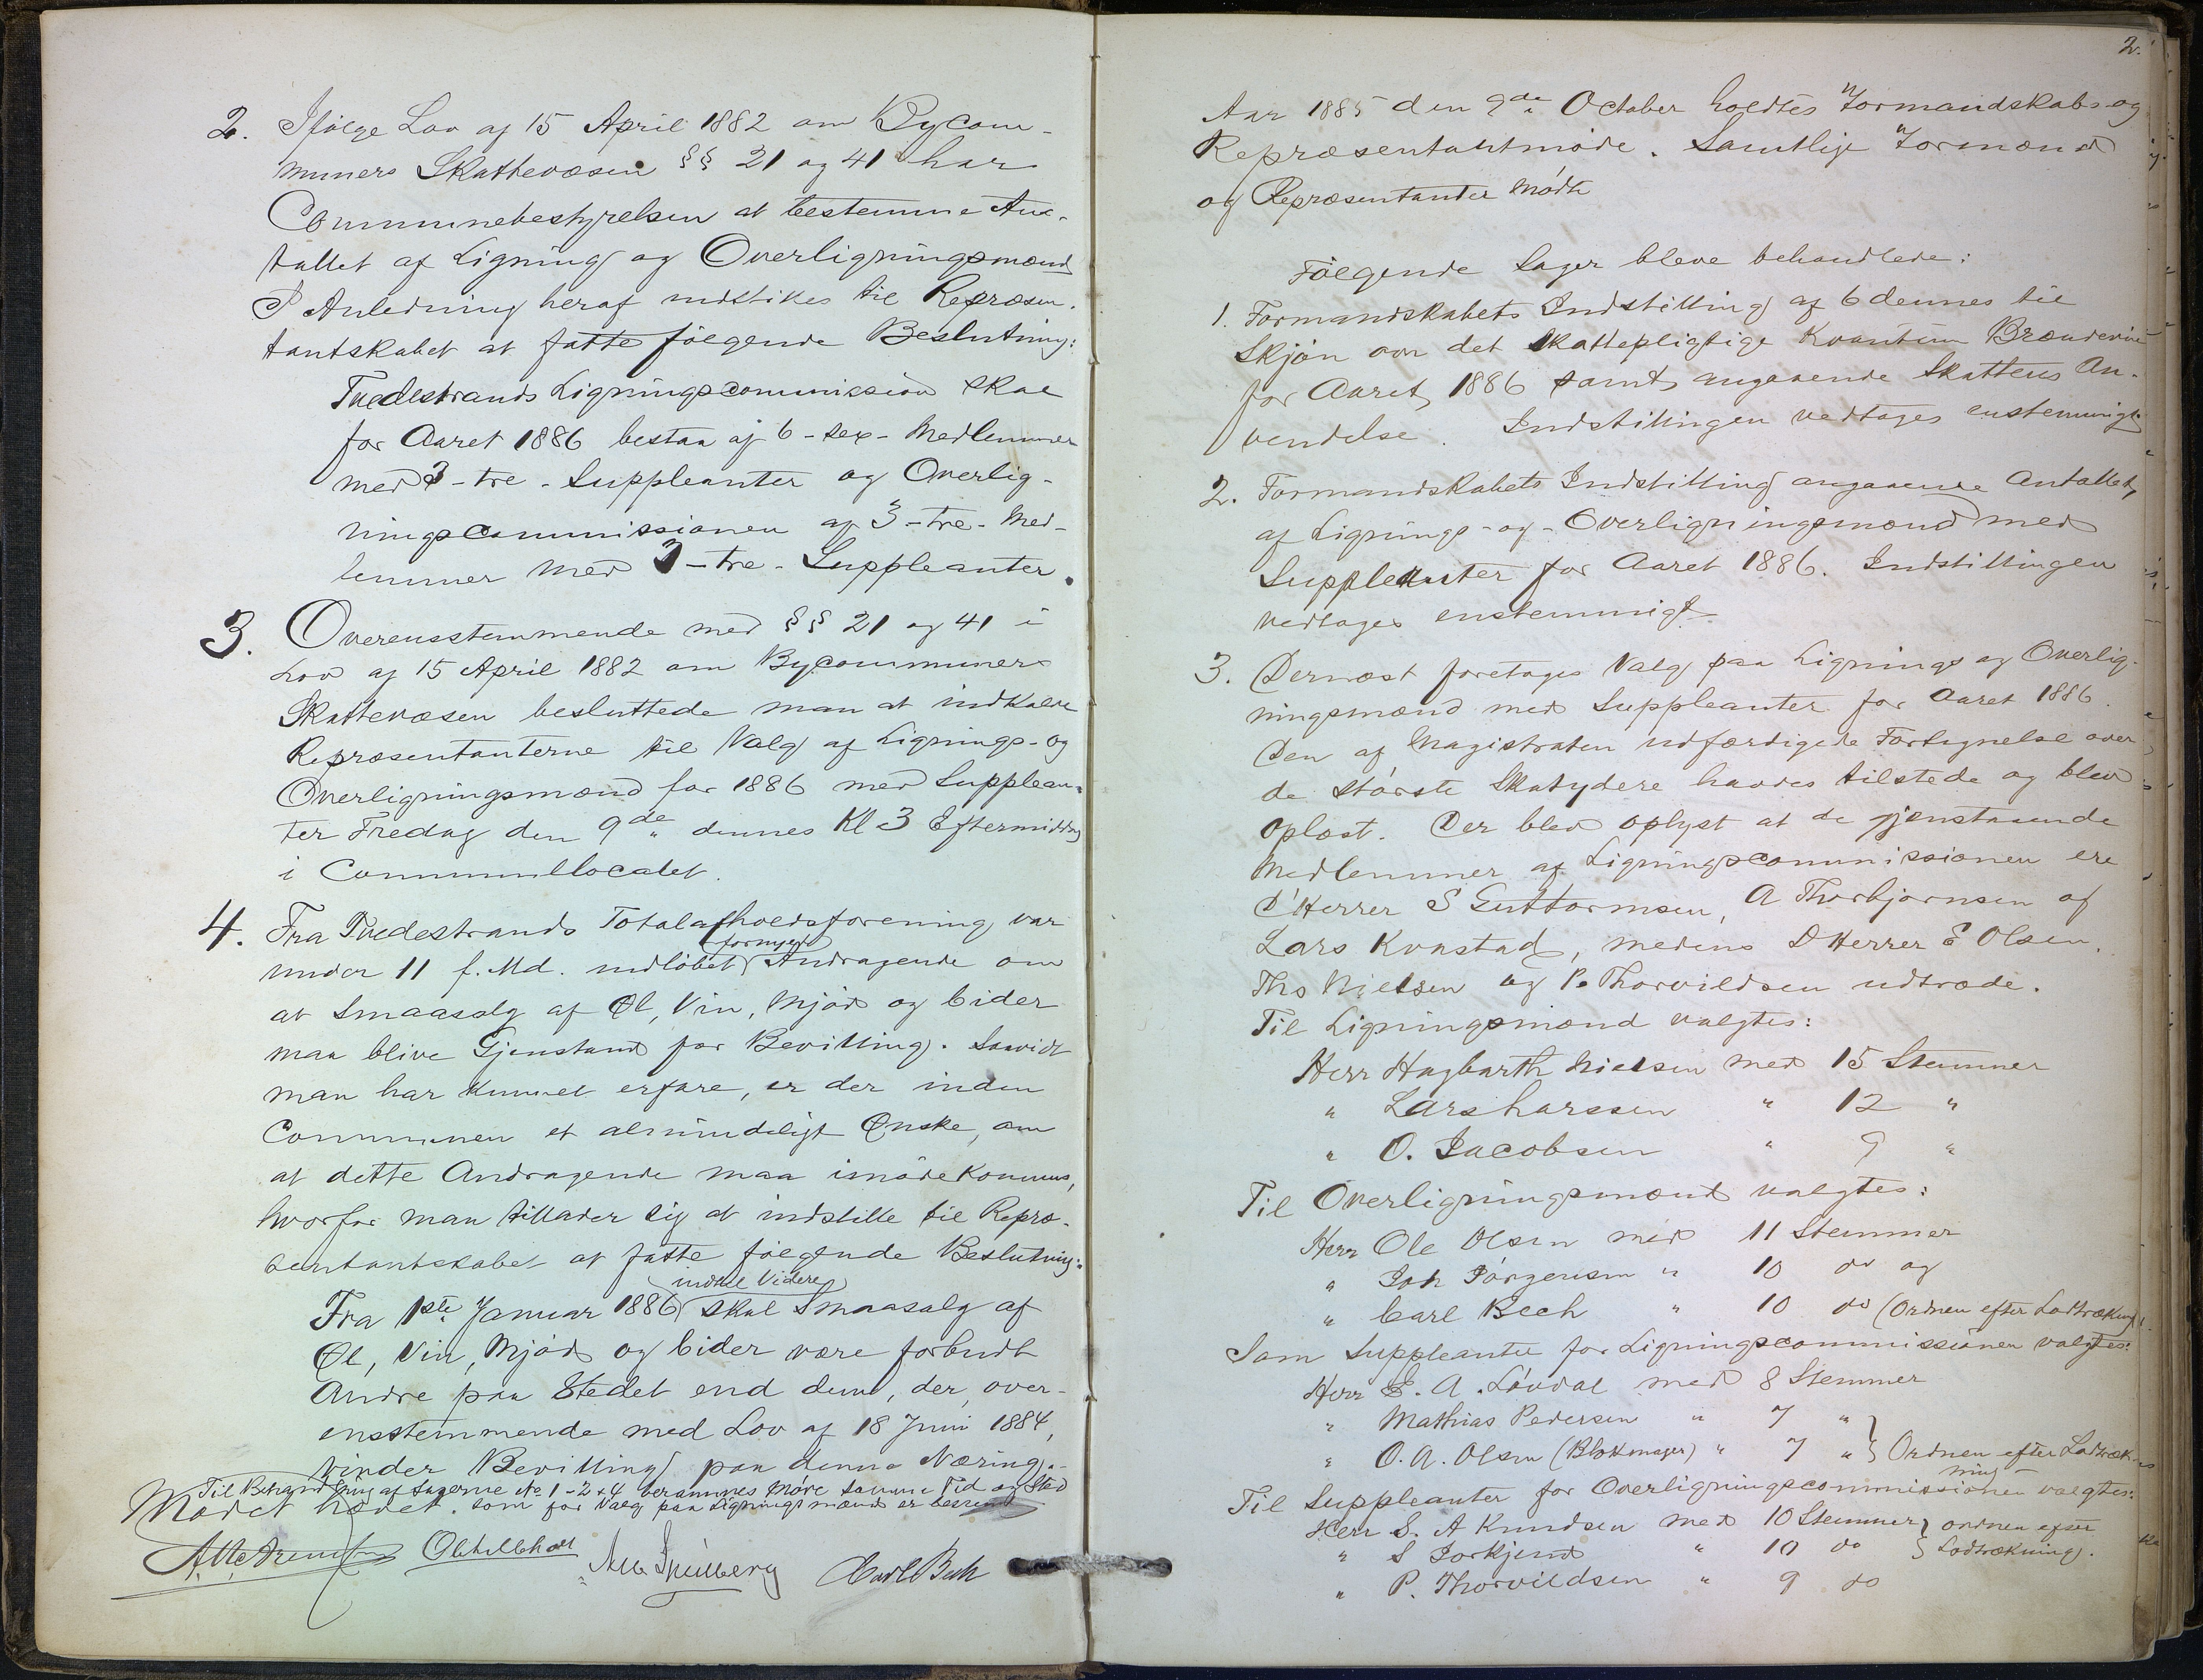 2. Ifølge Lov af 15 April 1882 om Bycom-
muners Skattevæsen §§ 21 og 41 har
Communebestyrelsen at bestemme An-
tallet af Ligning og Overligningsmænd
I Anledning heraf indstilles til Repræsen-
tantskabet at fatte følgende Beslutning:
Tvedestrands Ligningscommission skal
for Aaret 1886 bestaa af 6-sex-Medlemmer
med 3-tre-Suppleanter og Overlig-
ningscommissionen af 3-tre-Med-
lemmer med 3-tre-Suppleanter.
3. Overensstemmende med §§ 21 og 41 i
Lov af 15 April 1882 om Bycommuners
Skattevæsen besluttede man at indkalde
Repræsentanterne til Valg af Lignings- og
Overligningsmænd for 1886 med Supplean-
ter Fredag den 9de dennes Kl 3 Eftermiddag
i Communellocalet.
4. Fra Tvedestrands Totalafholdsforening var
under 11 f. Md. indløbet fornyet Andragende om
at Smaasalg af Øl, Vin, Mjød og Cider
maa blive Gjenstand for Bevilling. Saavidt
man har kunnet erfare, er der inden
Communen et almindeligt Ønske, om
at dette Andragende maa imødekommes,
hvorfor man tillader sig at indstille til Repræ-
sentantskabet at fatte følgende Beslutning:
Fra 1ste Januar 1886 indtil Videre skal Smaasalg af
Øl, Vin, Mjød og Cider være forbudt
Andre paa Stedet end dem, der, over-
ensstemmende med Lov af 18 Juni 1884,
vinder Bevilling paa denne Næring.
Til Behandling af Sagerne No 1-2 & 4 berammes Møde samme Tid og Sted
som for Valg paa Ligningsmænd er bestemt
Mødet hævet.
Carl Bech
2.
Aar 1885 den 9de October holdtes Formandskabs- og
Repræsentantmøde. Samtlige Formænd
og Repræsentanter mødte
Følgende Sager bleve behandlede:
1. Formandskabets Indstilling af 6 dennes til
Skjøn over det skattepligtige Kvantum Brændeviin
for Aaret 1886 samt angaaende Skattens An-
vendelse. Indstillingen vedtages enstemmigt
2. Formandskabets Indstilling angaaende Antallet
af Lignings- og - Overligningsmænd med
Suppleanter for Aaret 1886. Indstillingen
vedtages enstemmigt
3. Dernæst foretages Valg paa Lignings og Overlig-
ningsmænd med Suppleanter for Aaret 1886.
Den af Magistraten udfærdigede Fortegnelse over
de største Skatydere havdes tilstede og blev
oplæst. Der blev oplyst at de gjenstaaende
Medlemmer af Ligningscommissionen ere
D'Herrer S Guttormsen, A Thorbjørnsen og
Lars Kvastad, medens D Herrer E Olsen,
Ths Nielsen og P. Thorvildsen udtræde.
Til Ligningsmænd valgtes:
Herr Hagbarth Nielsen med 15 Stemmer
" Lars Larssen " 12 "
" O. Jacobsen " 9 "
Til Overligningsmænd valgtes:
Herr Ole Olsen med 11 Stemmer
" Joh Jørgensen " 10 do og
" Carl Bech " 10 do (Ordnen efter Lodtrækning)
Som Suppleanter for Ligningscommissionen valgtes:
Herr E. A. Løvdal med 8 Stemmer
" Mathias Pedersen " 7 "
" O. A. Olsen (Blokmager) " 7 " } Ordnen efter Lodtræk-
ning
Til Suppleanter for Overligningscommissionen valgtes:
Herr S. A Knudsen med 10 Stemmer } ordnen efter
" S Torkjend " 10 do } Lodtrækning.
" P. Thorvildsen " 9 do